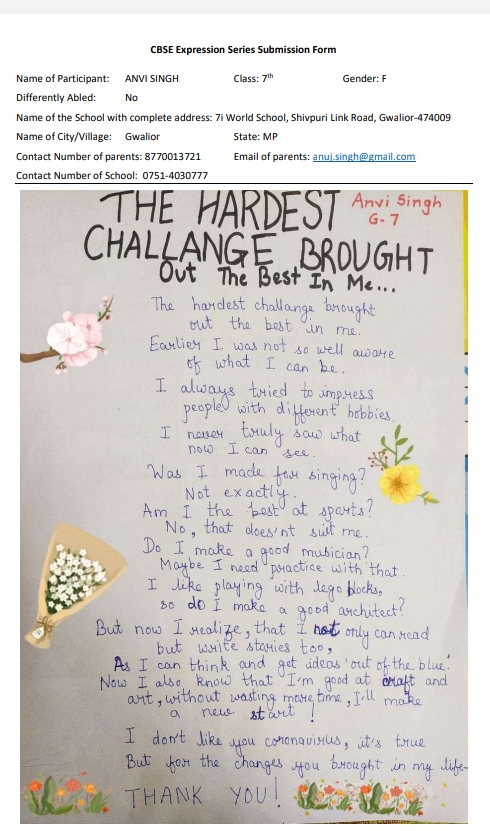 CBSE Expression Series Submission Form
Name of Participant: ANVI SINGH Class: 7th Gender: F
Differently Abled: No
Name of the School with complete address: 7i World School, Shivpuri Link Road, Gwalior-474009
Name of City/Village: Gwalior State: MP
Contact Number of parents: 8770013721 Email of parents: anuj.singh@gmail.com
Contact Number of School: 0751-4030777
Anvi Singh
G-7
THE HARDEST
CHALLANGE BROUGHT
Out The Best In Me...
The hardest challange brought
out the best in me.
Earlier I was not so well aware
of what I can be.
I always tried to impress
people with different hobbies.
I never truly saw what
now I can see.
Was I made for singing?
Not exactly.
Am I the best at sports?
No, that does'nt suit me.
Do I make a good musician?
Maybe I need practice with that.
I like playing with lego blocks,
so do I make a good architect?
But now I realize, that I not only can read
but write stories too,
As I can think and get ideas 'out of the blue'.
Now I also know that I'm good at craft and
art, without wasting more time, I'll make
a new start!
I don't like you coronavirus, it's true
But for the changes you brought in my life-
THANK YOU!